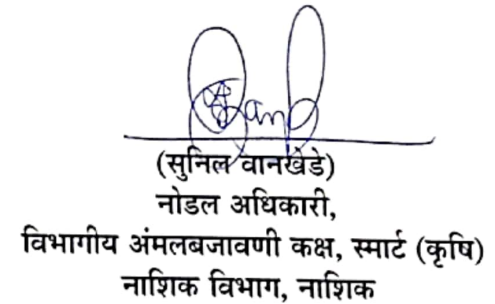 (सुनिल वानखेडे)
नोडल अधिकारी,
विभागीय अंमलबजावणी कक्ष, स्मार्ट (कृषि)
नाशिक विभाग, नाशिक